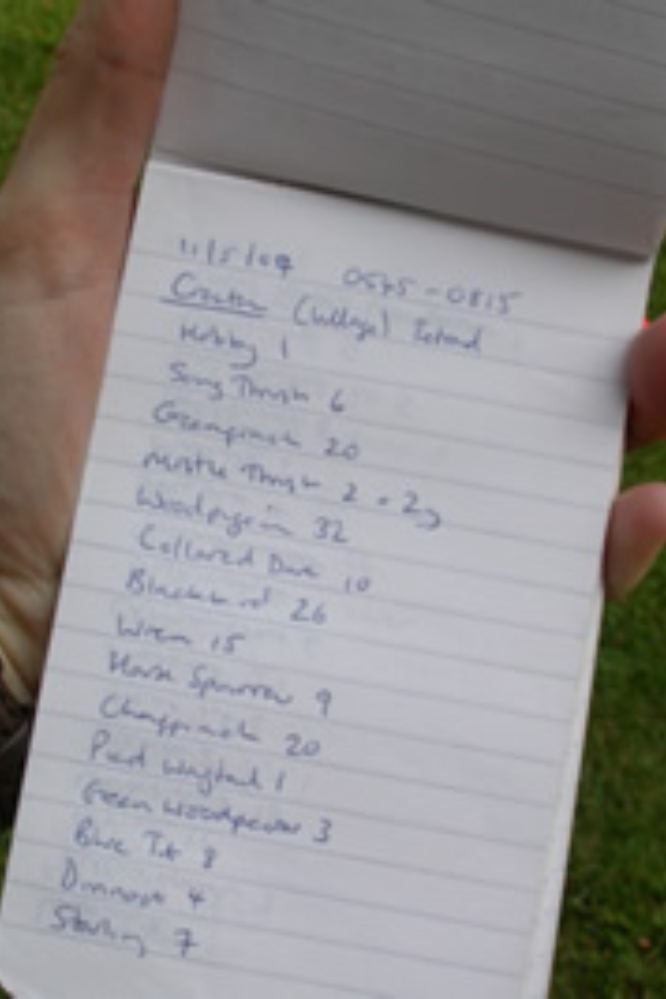 11/5/09 0545-0815
(Village)
Hobby 1
Song Thrush 6
Greenfinch 20
Mistle Thrush 2 + 2y
Woodpigeon 32
Collared Dove 10
Blackbird 26
Wren 15
House Sparrow 9
Chaffinch 20
Pied Wagtail 1
Green Woodpecker 3
Blue Tit 8
Dunnock 4
Starling 7